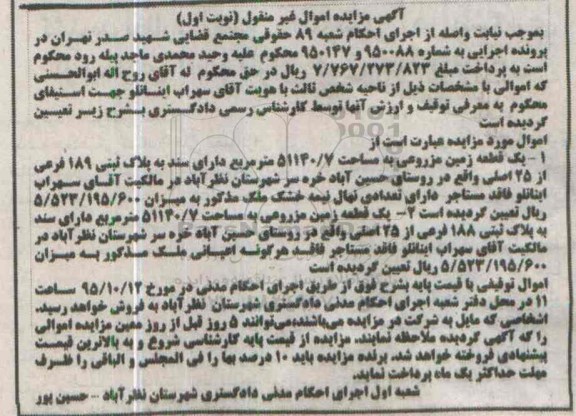 آگهی مزایده اموال غیر منقول (نوبت اول)
بموجب نیابت واصله از اجرای احکام شعبه ۸۹ حقوقی مجتمع قضایی شهید صدر تهران در
پرونده اجرایی به شماره ۹۵۰۰۸۸ و ۹۵۰۱۴۷ محکوم علیه وحید محمدی ماجد پیله رود محکوم
است به پرداخت مبلغ ۷/۷۶۷/۲۷۳/۸۲۳ ریال در حق محکوم له آقای روح اله ابوالحسنی
که اموالی با مشخصات ذیل از ناحیه شخص ثالث با هویت آقای سهراب اینانلو جهت استیفای
محکوم به معرفی توقیف و ارزش آنها توسط کارشناس رسمی دادگستری بشرح زیر تعیین
گردیده است
اموال مورد مزایده عبارت است از
۱ - یک قطعه زمین مزروعی به مساحت ۵۱۱۴۰/۷ مترمربع دارای سند به پلاک ثبتی ۱۸۹ فرعی
از ۲۵ اصلی واقع در روستای حسین آباد خره سر شهرستان نظرآباد در مالکیت آقای سهراب
اینانلو فاقد مستاجر دارای تعدادی نهال نیمه خشک ملک مذکور به میزان ۵/۵۲۳/۱۹۵/۶۰۰
ریال تعیین گردیده است ۲- یک قطعه زمین مزروعی به مساحت ۵۱۱۴۰/۷ مترمربع دارای سند
به پلاک ثبتی ۱۸۸ فرعی از ۲۵ اصلی واقع در روستای حسین آباد خره سر شهرستان نظرآباد در
مالکیت آقای سهراب اینانلو فاقد مستاجر فاقد هرگونه اعیانی ملک مذکور به میزان
۵/۵۲۳/۱۹۵/۶۰۰ ریال تعیین گردیده است
اموال توقیفی با قیمت پایه بشرح فوق از طریق اجرای احکام مدنی در مورخ ۹۵/۱۰/۱۲ ساعت
۱۱ در محل دفتر شعبه اجرای احکام مدنی دادگستری شهرستان نظرآباد به فروش خواهد رسید.
اشخاصی که مایل به شرکت در مزایده می‌باشند،می‌توانند ۵ روز قبل از روز معین مزایده اموالی
را که آگهی گردیده ملاحظه نمایند. مزایده از قیمت پایه کارشناسی شروع و به بالاترین قیمت
پیشنهادی فروخته خواهد شد. برنده مزایده باید ۱۰ درصد بها را فی المجلس و الباقی را ظرف
مهلت حداکثر یک ماه پرداخت نماید.
شعبه اول اجرای احکام مدنی دادگستری شهرستان نظرآباد - حسین پور